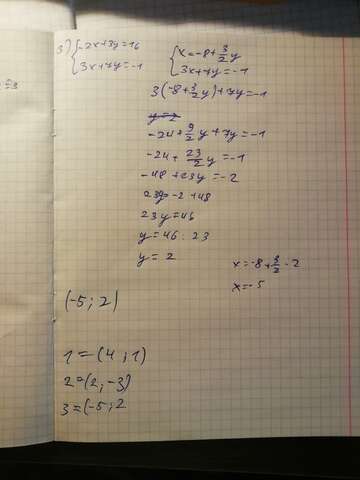 3) { -2x+3y=16 { x=-8+3/2y
3x+7y=-1 3x+7y=-1
3(-8+3/2y)+7y=-1
y=2
-24+9/2y+7y=-1
-24+23/2y=-1
-48+23y=-2
23y=-2+48
23y=46
y=46:23
y=2
x=-8+3/2·2
x=-5
(-5;2)
1=(4;1)
2=(2;-3)
3=(-5;2